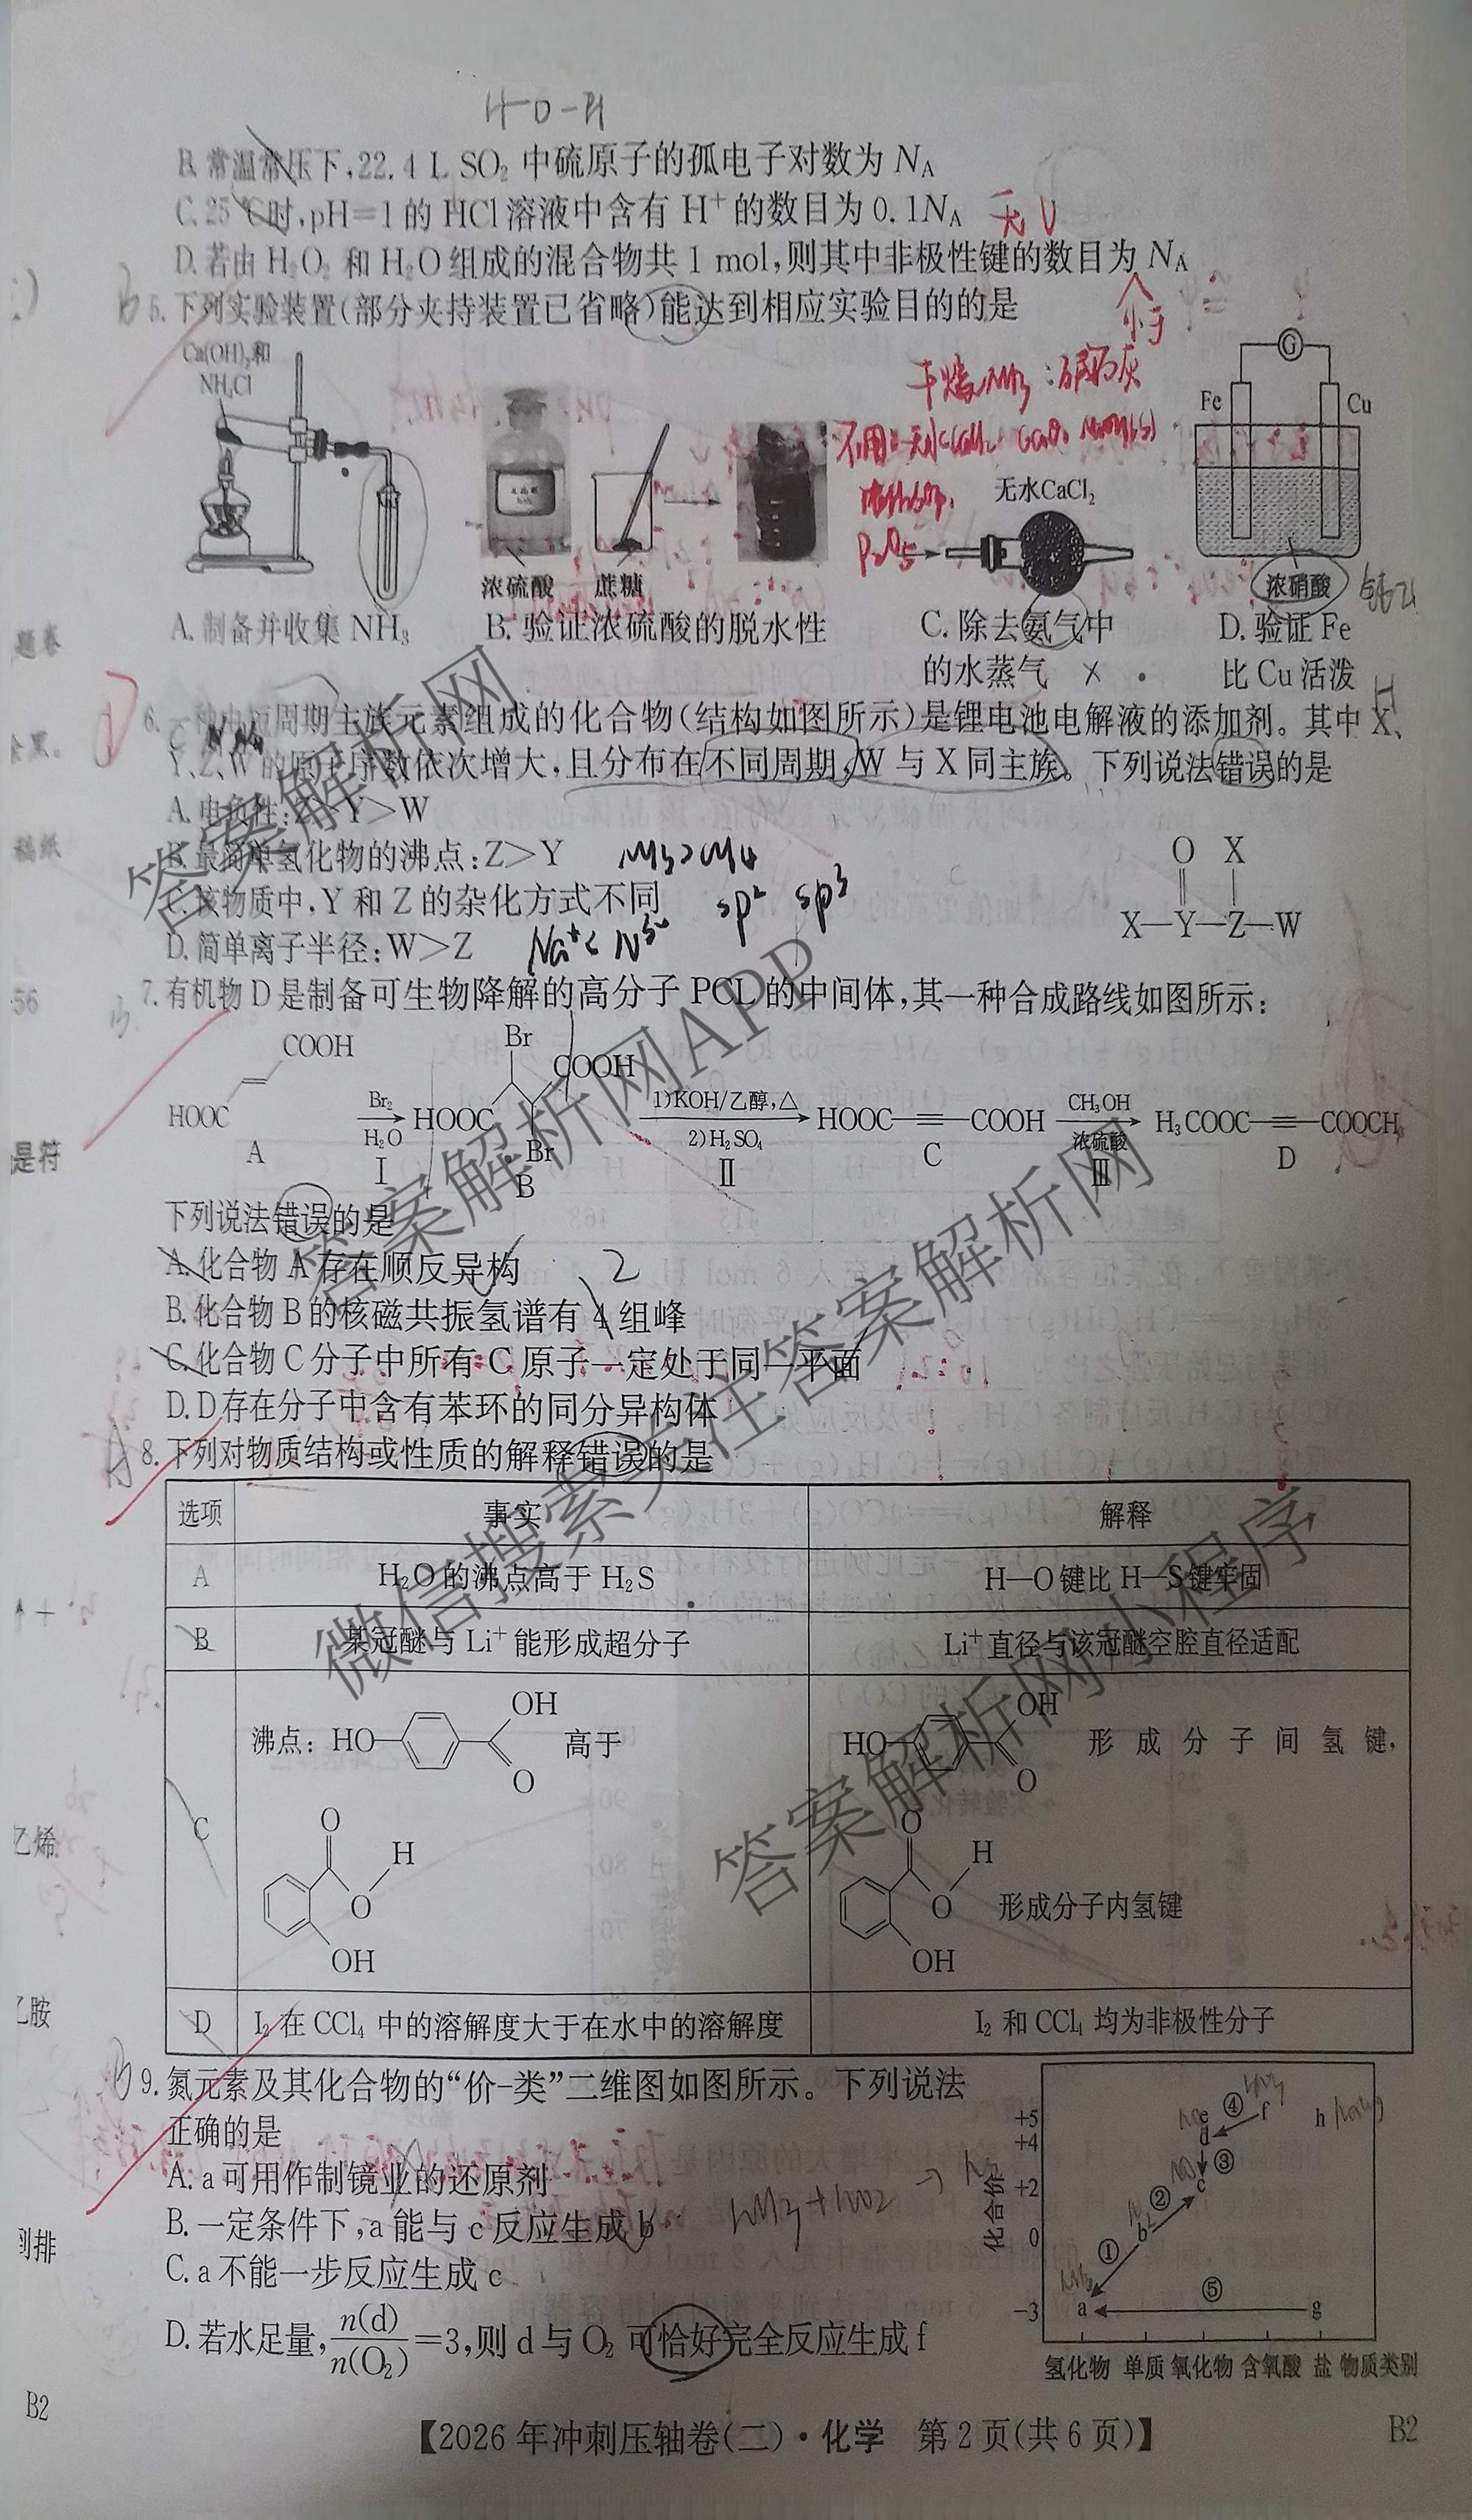 H-O-H
B. 常温常压下,22.4 L SO₂ 中硫原子的孤电子对数为 N_A
C. 25 ℃时,pH=1 的 HCl 溶液中含有 H⁺ 的数目为 0.1N_A 无V
D. 若由 H₂O₂ 和 H₂O 组成的混合物共 1 mol,则其中非极性键的数目为 N_A
小于
B 5. 下列实验装置(部分夹持装置已省略)能达到相应实验目的的是
Ca(OH)₂和
NH₄Cl
干燥NH₃:碱石灰
P₂O₅
浓硫酸 蔗糖
无水CaCl₂
G
Fe Cu
浓硝酸 钝化
A. 制备并收集 NH₃ B. 验证浓硫酸的脱水性 C. 除去氨气中 D. 验证 Fe
的水蒸气 × 比 Cu 活泼
6. 一种由短周期主族元素组成的化合物(结构如图所示)是锂电池电解液的添加剂。其中 X、
Y、Z、W 的原子序数依次增大,且分布在不同周期,W 与 X 同主族。下列说法错误的是
A. 电负性:Z>Y>W
B. 最简单氢化物的沸点:Z>Y NH₃>CH₄
C. 该物质中,Y 和 Z 的杂化方式不同 sp² sp³
D. 简单离子半径:W>Z Na⁺< N³⁻
O X
X—Y—Z—W
7. 有机物 D 是制备可生物降解的高分子 PCL 的中间体,其一种合成路线如图所示:
COOH
HOOC
A
Br₂
H₂O
Ⅰ
Br
COOH
HOOC
Br
B
1)KOH/乙醇,△
2)H₂SO₄
Ⅱ
HOOC—≡—COOH
C
CH₃OH
浓硫酸
Ⅲ
H₃COOC—≡—COOCH₃
D
下列说法错误的是
A. 化合物 A 存在顺反异构 2
B. 化合物 B 的核磁共振氢谱有 4 组峰
C. 化合物 C 分子中所有 C 原子一定处于同一平面
D. D 存在分子中含有苯环的同分异构体
A 8. 下列对物质结构或性质的解释错误的是
选项 事实 解释
A H₂O 的沸点高于 H₂S H—O 键比 H—S 键牢固
B 某冠醚与 Li⁺ 能形成超分子 Li⁺ 直径与该冠醚空腔直径适配
C 沸点: HO OH O 高于 HO OH O 形成分子间氢键,
O H O OH O H O OH 形成分子内氢键
D I₂ 在 CCl₄ 中的溶解度大于在水中的溶解度 I₂ 和 CCl₄ 均为非极性分子
B 9. 氮元素及其化合物的“价-类”二维图如图所示。下列说法
正确的是
A. a 可用作制镜业的还原剂
B. 一定条件下,a 能与 c 反应生成 b
C. a 不能一步反应生成 c
D. 若水足量,n(d)/n(O₂)=3,则 d 与 O₂ 可恰好完全反应生成 f
化合价
+5 e ④ f h
+4 d
③
+2 ② c
0 b
①
⑤
-3 a g
氢化物 单质 氧化物 含氧酸 盐 物质类别
题卷
稿纸
是符
乙烯
乙胺
B2
【2026 年冲刺压轴卷(二)·化学 第 2 页(共 6 页)】
B2
答案解析网
答案解析网APP
微信搜索关注答案解析网
答案解析网小程序